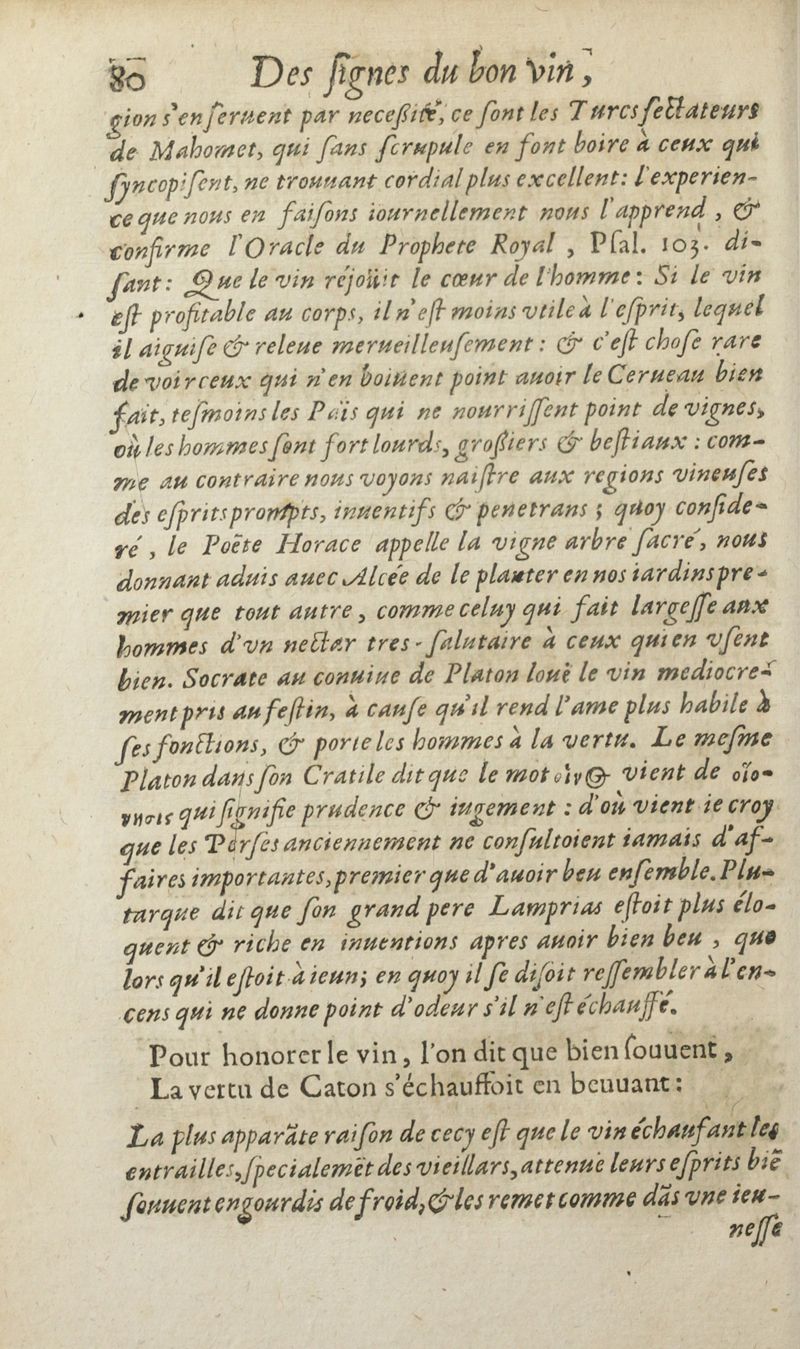 80 Des ſignes du bon vin,
gion s'en ſeruent par neceßité, ce ſont les Turcs ſectateurs
de Mahomet, qui ſans ſcrupule en font boire à ceux qui
ſyncopiſent, ne trouuant cordial plus excellent: l'experien-
ce que nous en faiſons iournellement nous l'apprend, &
confirme l'Oracle du Prophete Royal, Pſal. 103. di-
ſant: Que le vin réjoüit le cœur de l'homme: Si le vin
eſt profitable au corps, il n'eſt moins vtile à l'eſprit, lequel
il aiguiſe & releue merueilleuſement: & c'eſt choſe rare
de voir ceux qui n'en boiuent point auoir le Cerueau bien
fait, teſmoins les Païs qui ne nourriſſent point de vignes,
où les hommes ſont fort lourds, großiers & beſtiaux: com-
me au contraire nous voyons naiſtre aux regions vineuſes
des eſprits prompts, inuentifs & penetrans; quoy conſide-
ré, le Poëte Horace appelle la vigne arbre ſacré, nous
donnant aduis auec Alcée de le planter en nos iardins pre-
mier que tout autre, comme celuy qui fait largeſſe aux
hommes d'vn nectar tres-ſalutaire à ceux qui en vſent
bien. Socrate au conuiue de Platon louë le vin mediocre-
ment pris au feſtin, à cauſe qu'il rend l'ame plus habile à
ſes fonctions, & porte les hommes à la vertu. Le meſme
Platon dans ſon Cratile dit que le mot οἶνος vient de οἰο-
νησις qui ſignifie prudence & iugement: d'où vient ie croy
que les Perſes anciennement ne conſultoient iamais d'af-
faires importantes, premier que d'auoir beu enſemble. Plu-
tarque dit que ſon grand pere Lamprias eſtoit plus élo-
quent & riche en inuentions apres auoir bien beu, que
lors qu'il eſtoit à ieun; en quoy il ſe diſoit reſſembler à l'en-
cens qui ne donne point d'odeur s'il n'eſt échauffé.
Pour honorer le vin, l'on dit que bien ſouuent,
La vertu de Caton s'échauffoit en beuuant:
La plus apparãte raiſon de cecy eſt que le vin échaufant les
entrailles, ſpecialemẽt des vieillars, attenuë leurs eſprits biẽ
ſouuent engourdis de froid, & les remet comme dãs vne ieu-
neſſe